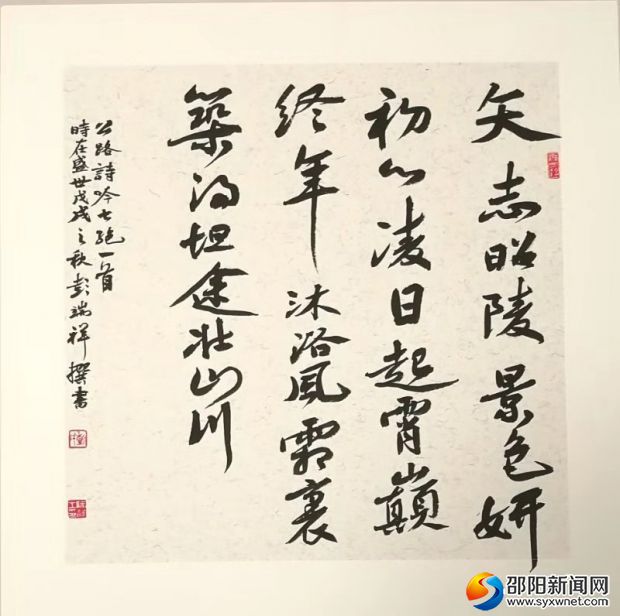 矢志昭陵景色妍
初心凌日起霄巔
终年沐浴風霜裏
築得坦途壮山川
公路詩吟七绝一首
時在盛世戊戌之秋彭端祥撰書
邵阳新闻网
www.syxwnet.com